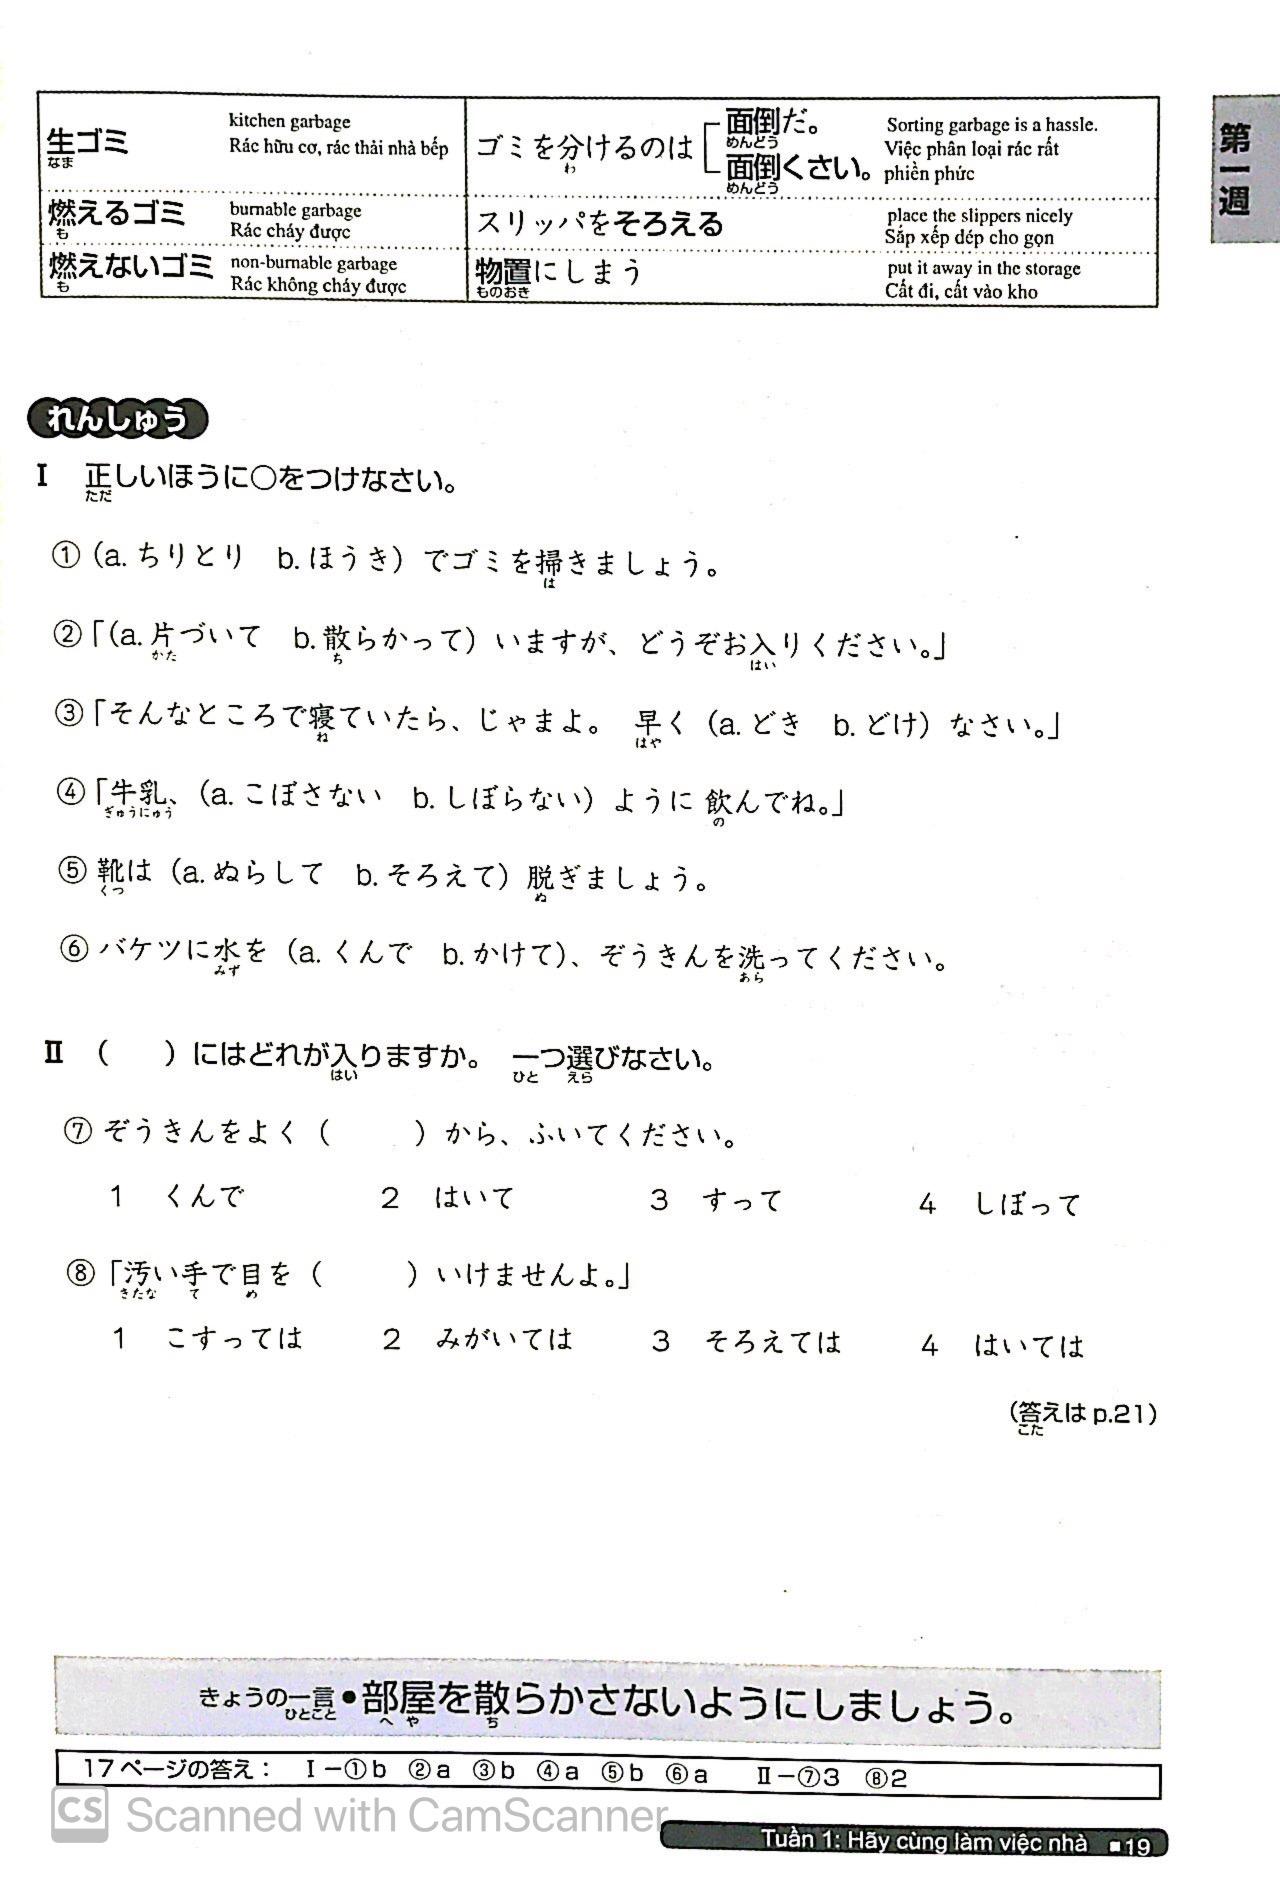 生ゴミ
なま
kitchen garbage
Rác hữu cơ, rác thải nhà bếp
ゴミを分けるのは
わ
面倒だ。
めんどう
面倒くさい。
めんどう
Sorting garbage is a hassle.
Việc phân loại rác rất
phiền phức
燃えるゴミ
も
burnable garbage
Rác cháy được
スリッパをそろえる
place the slippers nicely
Sắp xếp dép cho gọn
燃えないゴミ
も
non-burnable garbage
Rác không cháy được
物置にしまう
ものおき
put it away in the storage
Cất đi, cất vào kho
第一週
れんしゅう
I 正しいほうに○をつけなさい。
ただ
① (a. ちりとり b. ほうき) でゴミを掃きましょう。
は
②「(a. 片づいて b. 散らかって) いますが、どうぞお入りください。」
かた ち はい
③「そんなところで寝ていたら、じゃまよ。 早く (a. どき b. どけ) なさい。」
ね はや
④「牛乳、(a. こぼさない b. しぼらない) ように 飲んでね。」
ぎゅうにゅう の
⑤ 靴は (a. ぬらして b. そろえて) 脱ぎましょう。
くつ ぬ
⑥ バケツに水を (a. くんで b. かけて)、ぞうきんを洗ってください。
みず あら
II ( ) にはどれが入りますか。 一つ選びなさい。
はい ひと えら
⑦ ぞうきんをよく ( ) から、ふいてください。
1 くんで 2 はいて 3 すって 4 しぼって
⑧「汚い手で目を ( ) いけませんよ。」
きたな て め
1 こすっては 2 みがいては 3 そろえては 4 はいては
(答えは p.21)
こた
きょうの一言●部屋を散らかさないようにしましょう。
ひとこと へや ち
17ページの答え： I－①b ②a ③b ④a ⑤b ⑥a II－⑦3 ⑧2
CS Scanned with CamScanner
Tuần 1: Hãy cùng làm việc nhà ■19